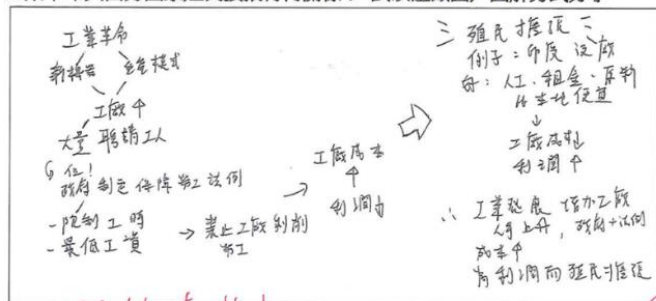 工業革命
新機器
生產模式
工廠↑
大量聘請工人
但!
政府制定保障勞工法例
-限制工時
-最低工資
→ 禁止工廠剝削
勞工
→ 工廠成本
↑
利潤↓
⇨
三 殖民擴張
例子:印度
人工、租金、原料
比本地便宜
↓
工廠成本↓
利潤↑
∴ 工業發展 增加工廠
成本↑
為利潤而殖民擴張